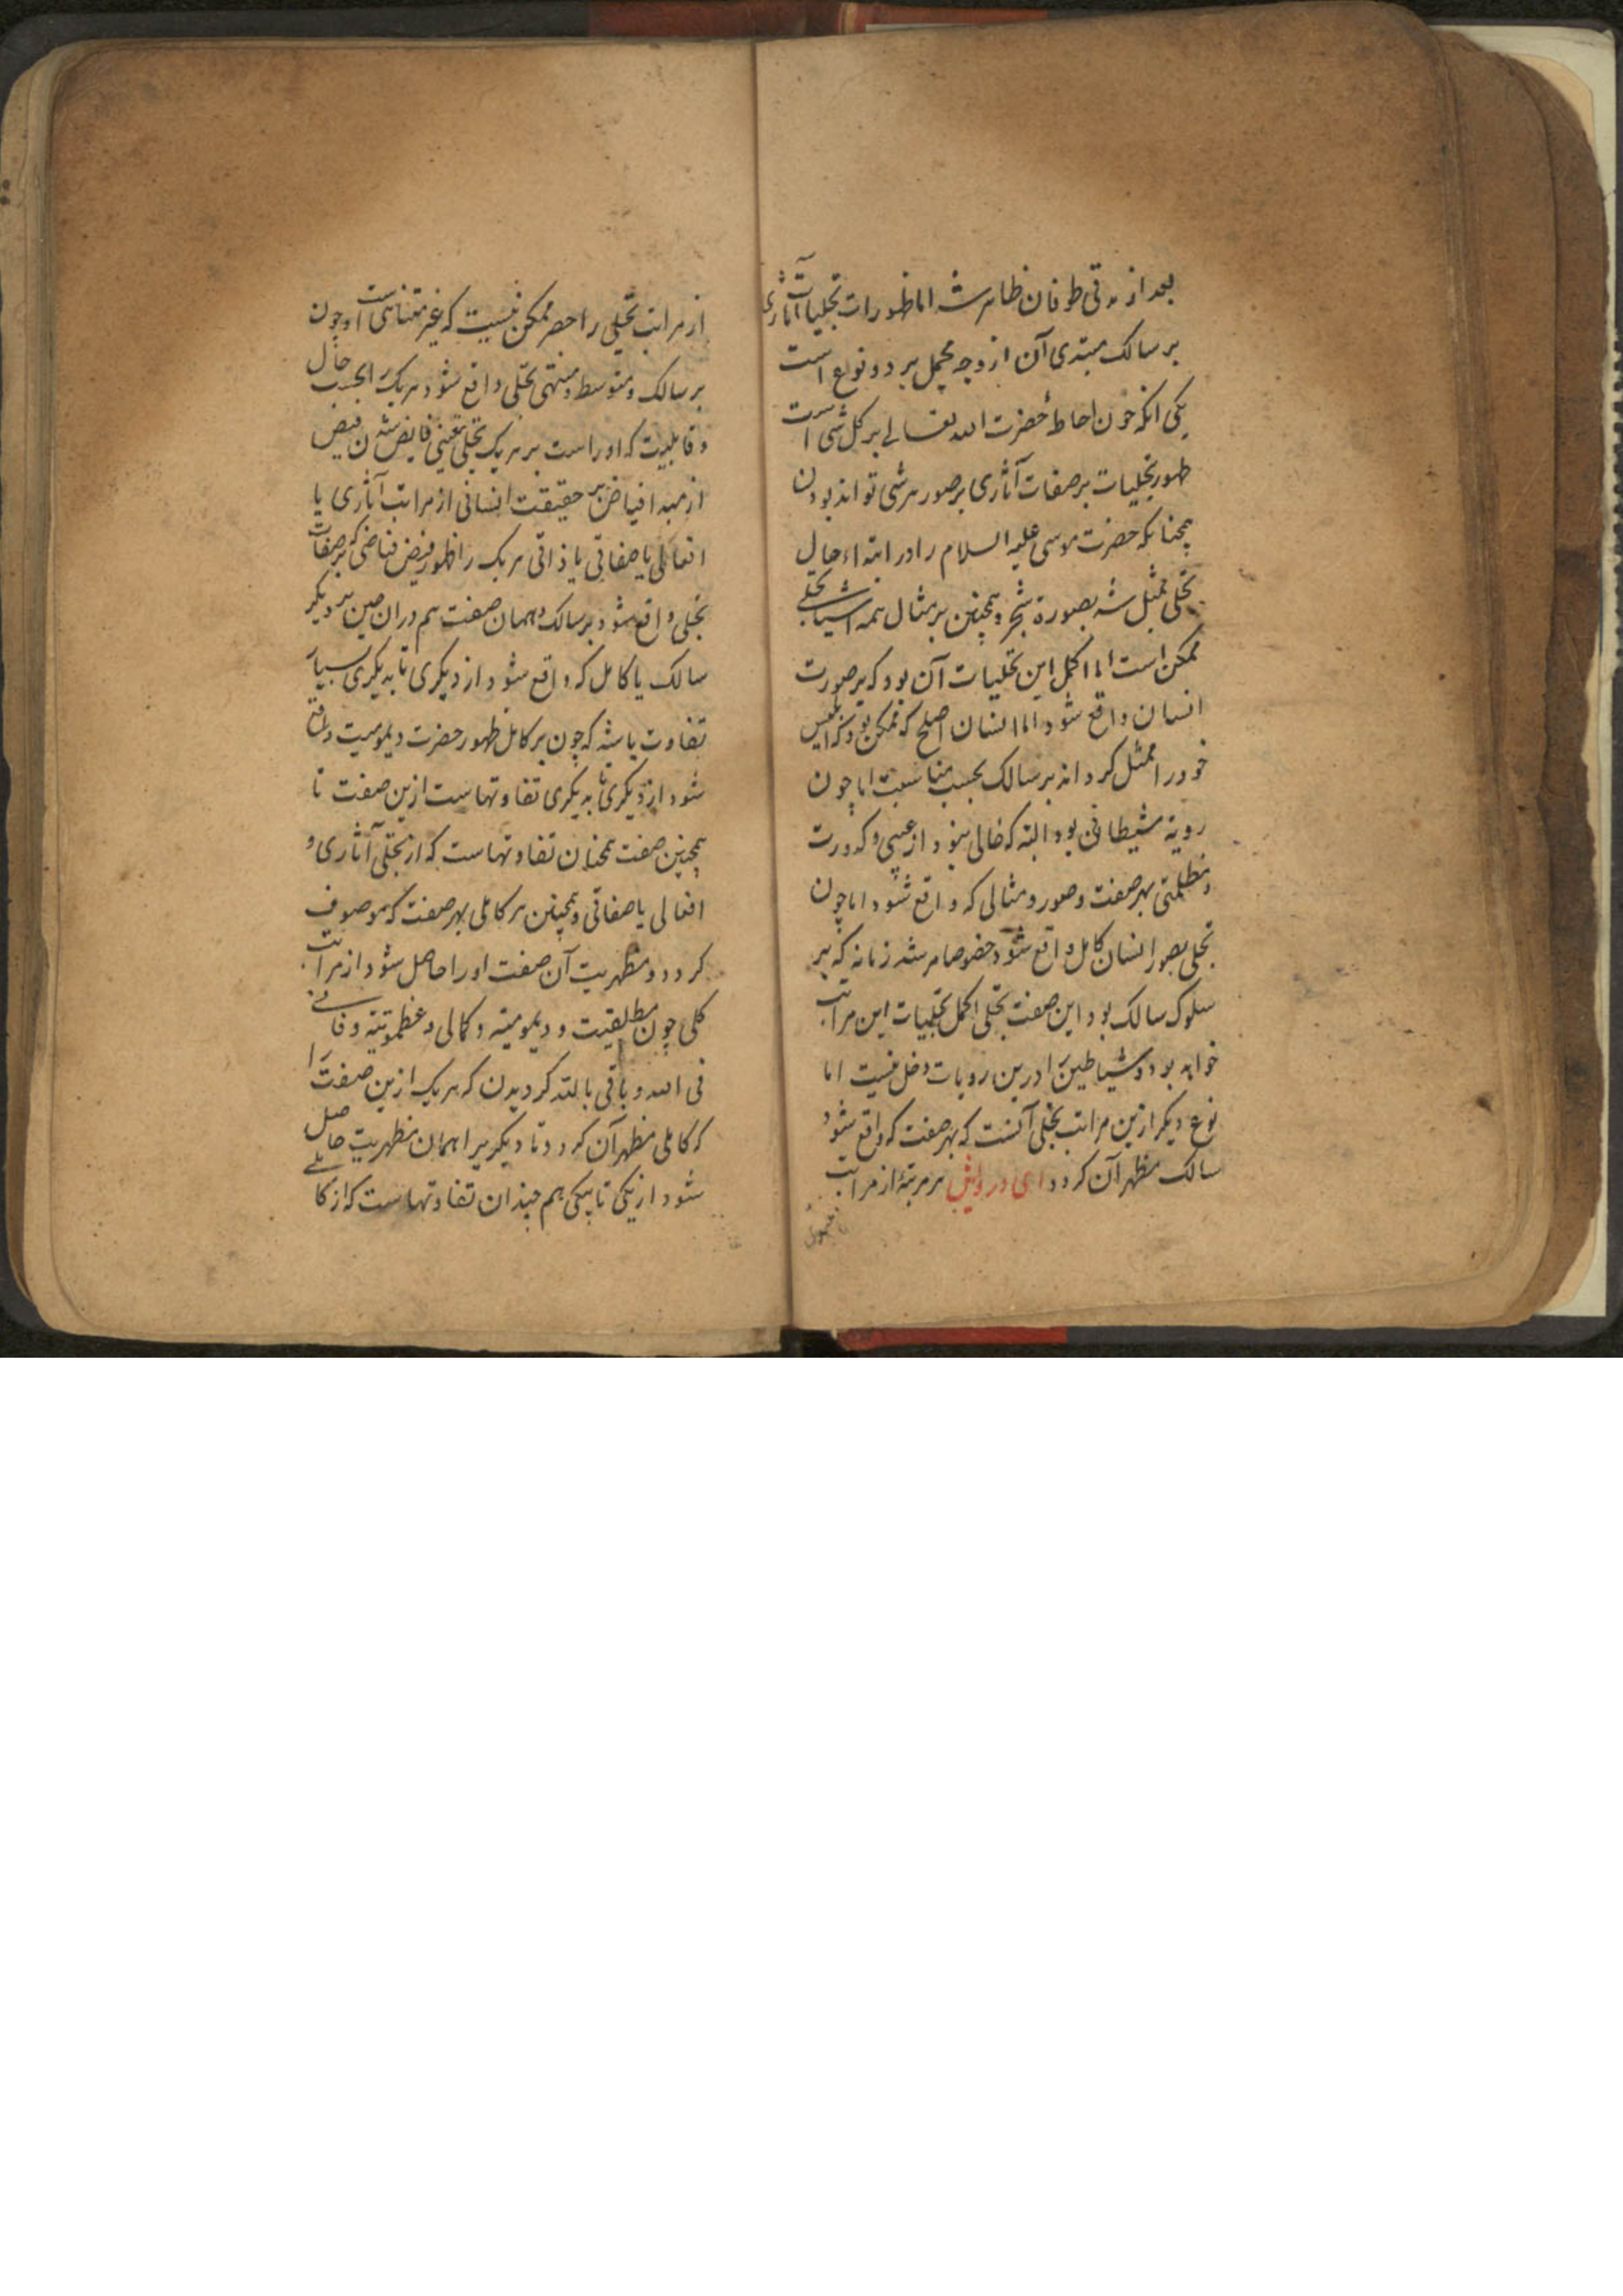 بعد از مدتی طوفان ظاهر شد اما ظهورات تجلیات آثاری
بر سالک مبتدی آن از وجه مجمل بر دو نوع است
یکی آنکه چون احاطهٔ حضرت الله تعالی بر کل شی است
ظهور تجلیات بر صفات آثاری بر صور هر شی تواند بودن
همچنانکه حضرت موسی علیه السلام را در ابتداء حال
تجلی ممثل شد بصورة شجر و همچنین بر مثال همه اشیا تجلی
ممکن است اما اکمل این تجلیات آن بود که بر صورت
انسان واقع شود اما انسان اصلح که ممکن بود که ابلیس
خود را ممثل کرداند بر سالک بحسب مناسبت اما چون
رویة شیطانی بود البته که خالی نبود از عیبی و کدورت
و ظلمتی بهر صفت و صور و مثالی که واقع شود اما چون
تجلی بصور انسان کامل واقع شود خصوصا مرشد زمانه که پیر
سلوک سالک بود این صفت تجلی اکمل تجلیات این مراتب
خواهد بود و شیاطین را درین رویات دخل نیست اما
نوع دیگر ازین مراتب تجلی آنست که بهر صفت که واقع شود
سالک مظهر آن کردد ای درویش هر مرتبهٔ از مراتب
از مراتب تجلی را حصر ممکن نیست که غیر متناهی است و چون
بر سالک و متوسط و منتهی تجلی واقع شود هر یک را بحسب حال
و قابلیت که او راست بر هر یک تجلی تعینی فایض شدن فیض
از مبداء فیاض بر حقیقت انسانی از مراتب آثاری یا
افعالی یا صفاتی یا ذاتی هر یک را ظهور فیض فیاضی که بر صفات
تجلی واقع شود بر سالک و همان صفت هم در آن حین بر دیگر
سالک یا کامل که واقع شود از دیگری تا بدیگری بسیار
تفاوت باشد که چون بر کامل ظهور حضرت دیمومیت واقع
شود از دیگری تا بدیگری تفاوتهاست ازین صفت تا
همچنین صفت همچنان تفاوتهاست که از تجلی آثاری و
افعالی یا صفاتی و همچنین هر کاملی بهر صفت که موصوف
کردد و مظهریت آن صفت او را حاصل شود از مراتب
کلی چون مطلقیت و دیمومیته و کمالی و عظموتیته و فانی
فی الله و باقی بالله کردیدن که هر یک ازین صفت را
که کاملی مظهر آن کردد تا دیگریرا همان مظهریت حاصل
شود از یکی تا بیکی هم چندان تفاوتهاست که از کاملی